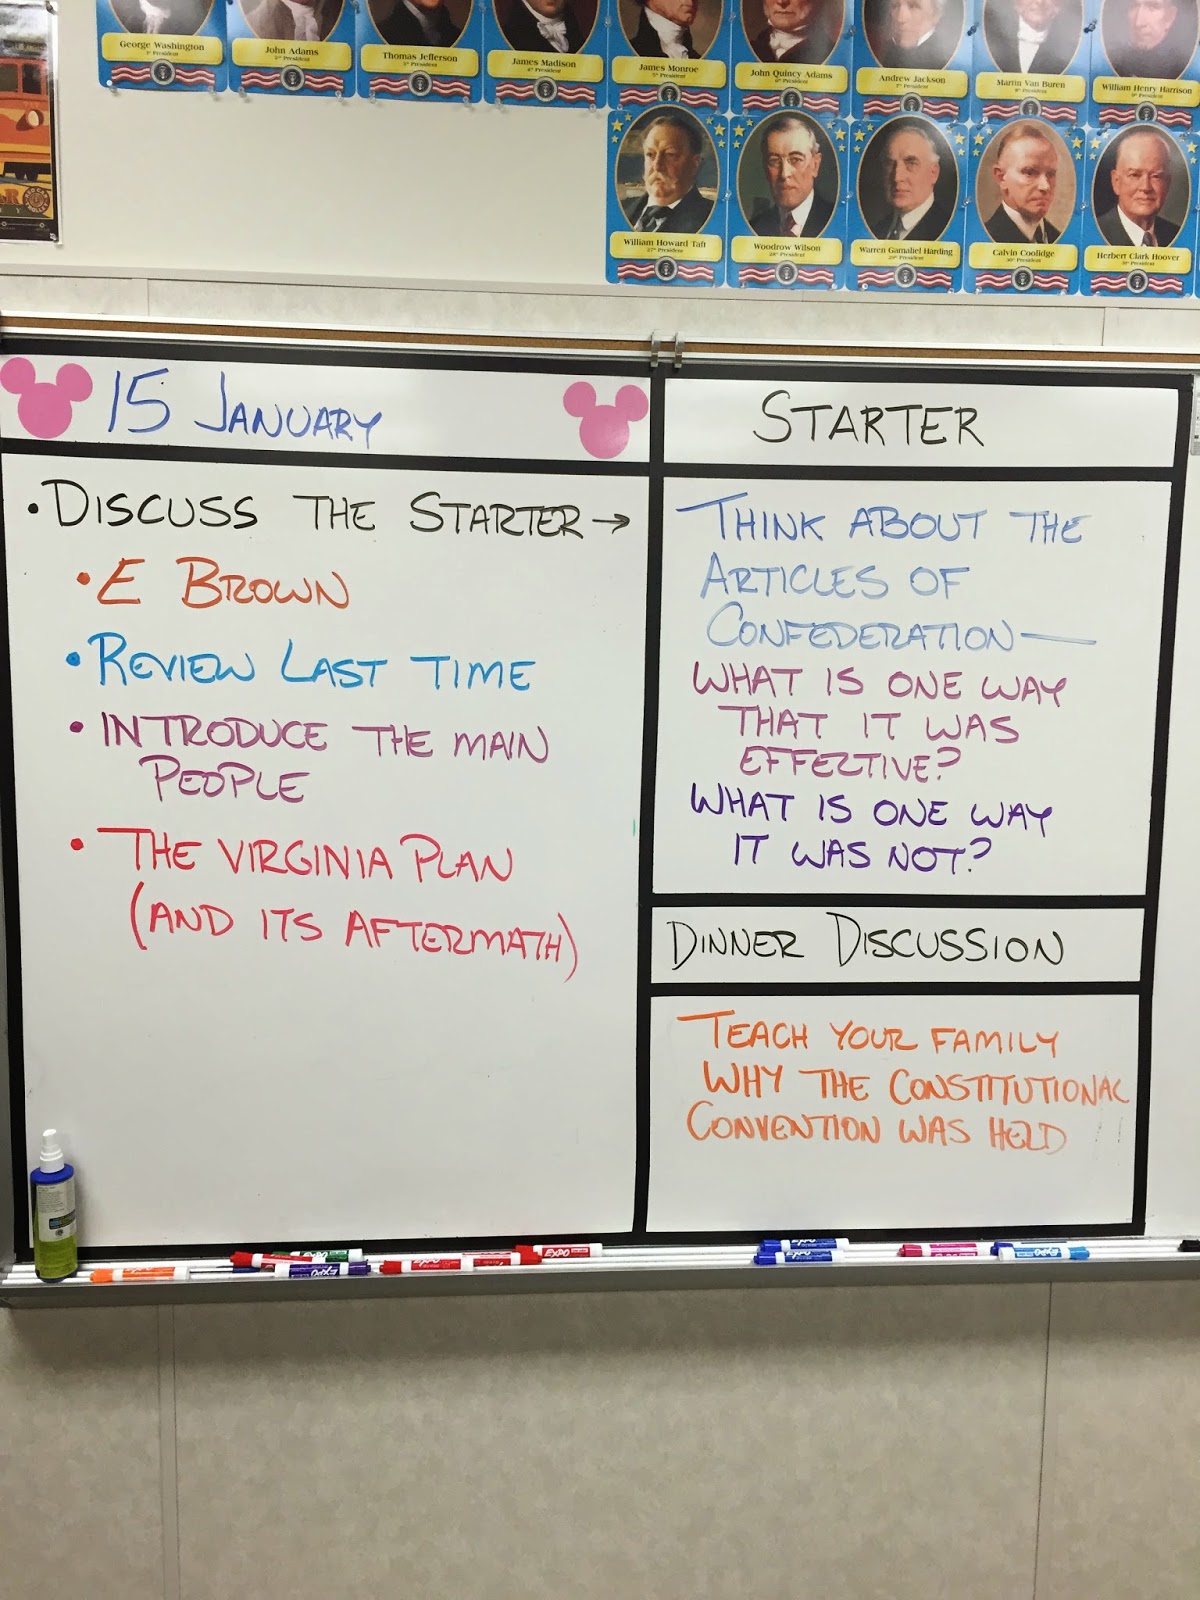 George Washington
1st President
John Adams
2nd President
Thomas Jefferson
3rd President
James Madison
4th President
James Monroe
5th President
John Quincy Adams
6th President
Andrew Jackson
7th President
Martin Van Buren
8th President
William Henry Harrison
9th President
William Howard Taft
27th President
Woodrow Wilson
28th President
Warren Gamaliel Harding
29th President
Calvin Coolidge
30th President
Herbert Clark Hoover
31st President
15 JANUARY
• DISCUSS THE STARTER →
• E BROWN
• REVIEW LAST TIME
• INTRODUCE THE MAIN
PEOPLE
• THE VIRGINIA PLAN
(AND ITS AFTERMATH)
STARTER
THINK ABOUT THE
ARTICLES OF
CONFEDERATION—
WHAT IS ONE WAY
THAT IT WAS
EFFECTIVE?
WHAT IS ONE WAY
IT WAS NOT?
DINNER DISCUSSION
TEACH YOUR FAMILY
WHY THE CONSTITUTIONAL
CONVENTION WAS HELD
EXPO
EXPO
EXPO
EXPO
EXPO